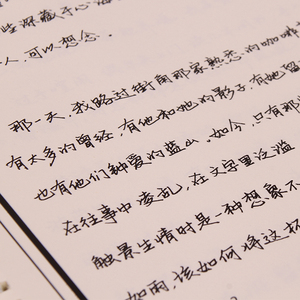 些深藏于心海
人，可以想念。
那一天，我路过街角那家熟悉的咖啡
有太多的曾经，有他和她的影子，有她留
也有他们钟爱的蓝山。如今，只有那
在往事中凌乱，在文字里泛滥
触景生情时是一种想象不
如雨，该如何将这杯